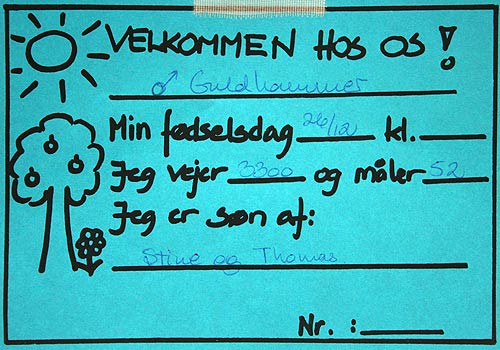 VELKOMMEN HOS OS!
♂ Guldhammer
Min fødselsdag 26/12 kl.
Jeg vejer 3300 og måler 52
Jeg er søn af:
Stine og Thomas
Nr. :